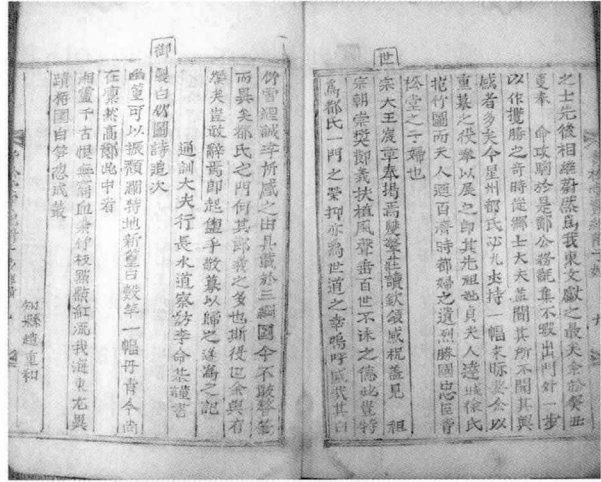 之士先後相繼蔚然爲我東文獻之最夫余於癸丑
夏奉 命攻駒於是鄕公務氄集不暇出門外一步
以作攬勝之奇時從鄕士大夫盖聞其所不聞其興
感者多矣今星州都氏沁九丈持一幅來眎余以
重摹之役奉以展之卽其先祖妣貞夫人達城徐氏
抱竹圖而夫人迺百濟時都婦之遺烈勝國忠臣
松堂之子婦也
世
宗大王宸章奉揭焉雙擎莊讀欽領感祝盖見 祖
宗朝崇奬節義扶植風聲垂百世不沫之德此豈特
爲都氏一門之榮抑亦爲世道之幸嗚呼盛哉其白
竹雪裡誠孝所感之由具載於三綱圖今不敢
而異矣都氏之門何其節義之多也斯役也余與有
榮矣豈敢辭焉卽起盥手敬摹以歸之遂爲之記
通訓大夫行長水道察訪李命謹書
御
製白竹圖詩追次
幽篁可以振頹瀾特地新篁白數竿一幅丹靑今尙
在凜然高節此中看
湘靈千古恨無端血染枝點顆紅流我海東尤異
蹟楊園白笋忽成叢
知縣趙重和